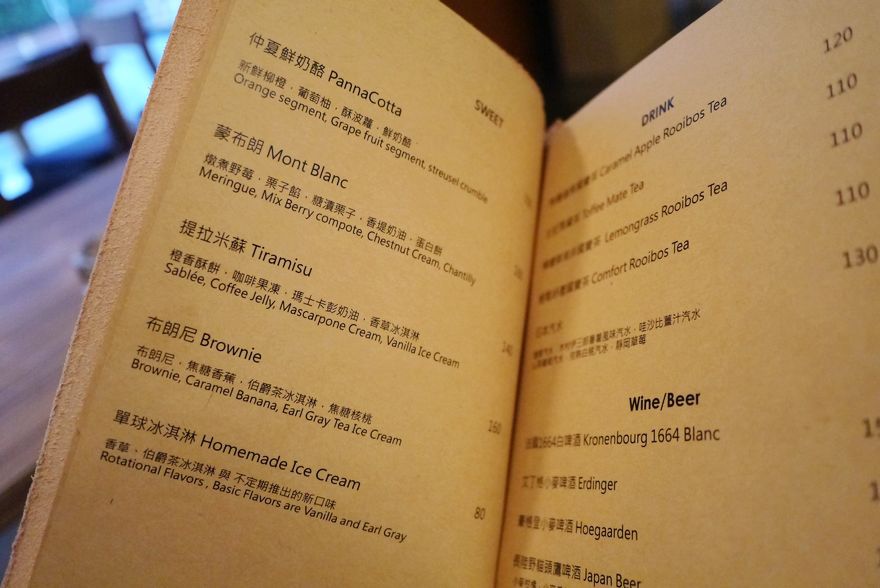 SWEET
仲夏鮮奶酪 PannaCotta
新鮮柳橙．葡萄柚．酥波蘿．鮮奶酪
Orange segment, Grape fruit segment, streusel crumble
蒙布朗 Mont Blanc
燉煮野莓．栗子餡．糖漬栗子．香堤奶油．蛋白餅
Meringue, Mix Berry compote, Chestnut Cream, Chantilly
提拉米蘇 Tiramisu
橙香酥餅．咖啡果凍．瑪士卡彭奶油．香草冰淇淋
Sablée, Coffee Jelly, Mascarpone Cream, Vanilla Ice Cream
140
布朗尼 Brownie
布朗尼．焦糖香蕉．伯爵茶冰淇淋．焦糖核桃
Brownie, Caramel Banana, Earl Gray Tea Ice Cream
160
單球冰淇淋 Homemade Ice Cream
香草、伯爵茶冰淇淋 與 不定期推出的新口味
Rotational Flavors , Basic Flavors are Vanilla and Earl Gray
80
DRINK
120
Caramel Apple Rooibos Tea 110
Toffee Mate Tea 110
Lemongrass Rooibos Tea 110
Comfort Rooibos Tea 130
Wine/Beer
1664白啤酒 Kronenbourg 1664 Blanc
艾丁格小麥啤酒 Erdinger
豪格登小麥啤酒 Hoegaarden
常陸野貓頭鷹啤酒 Japan Beer